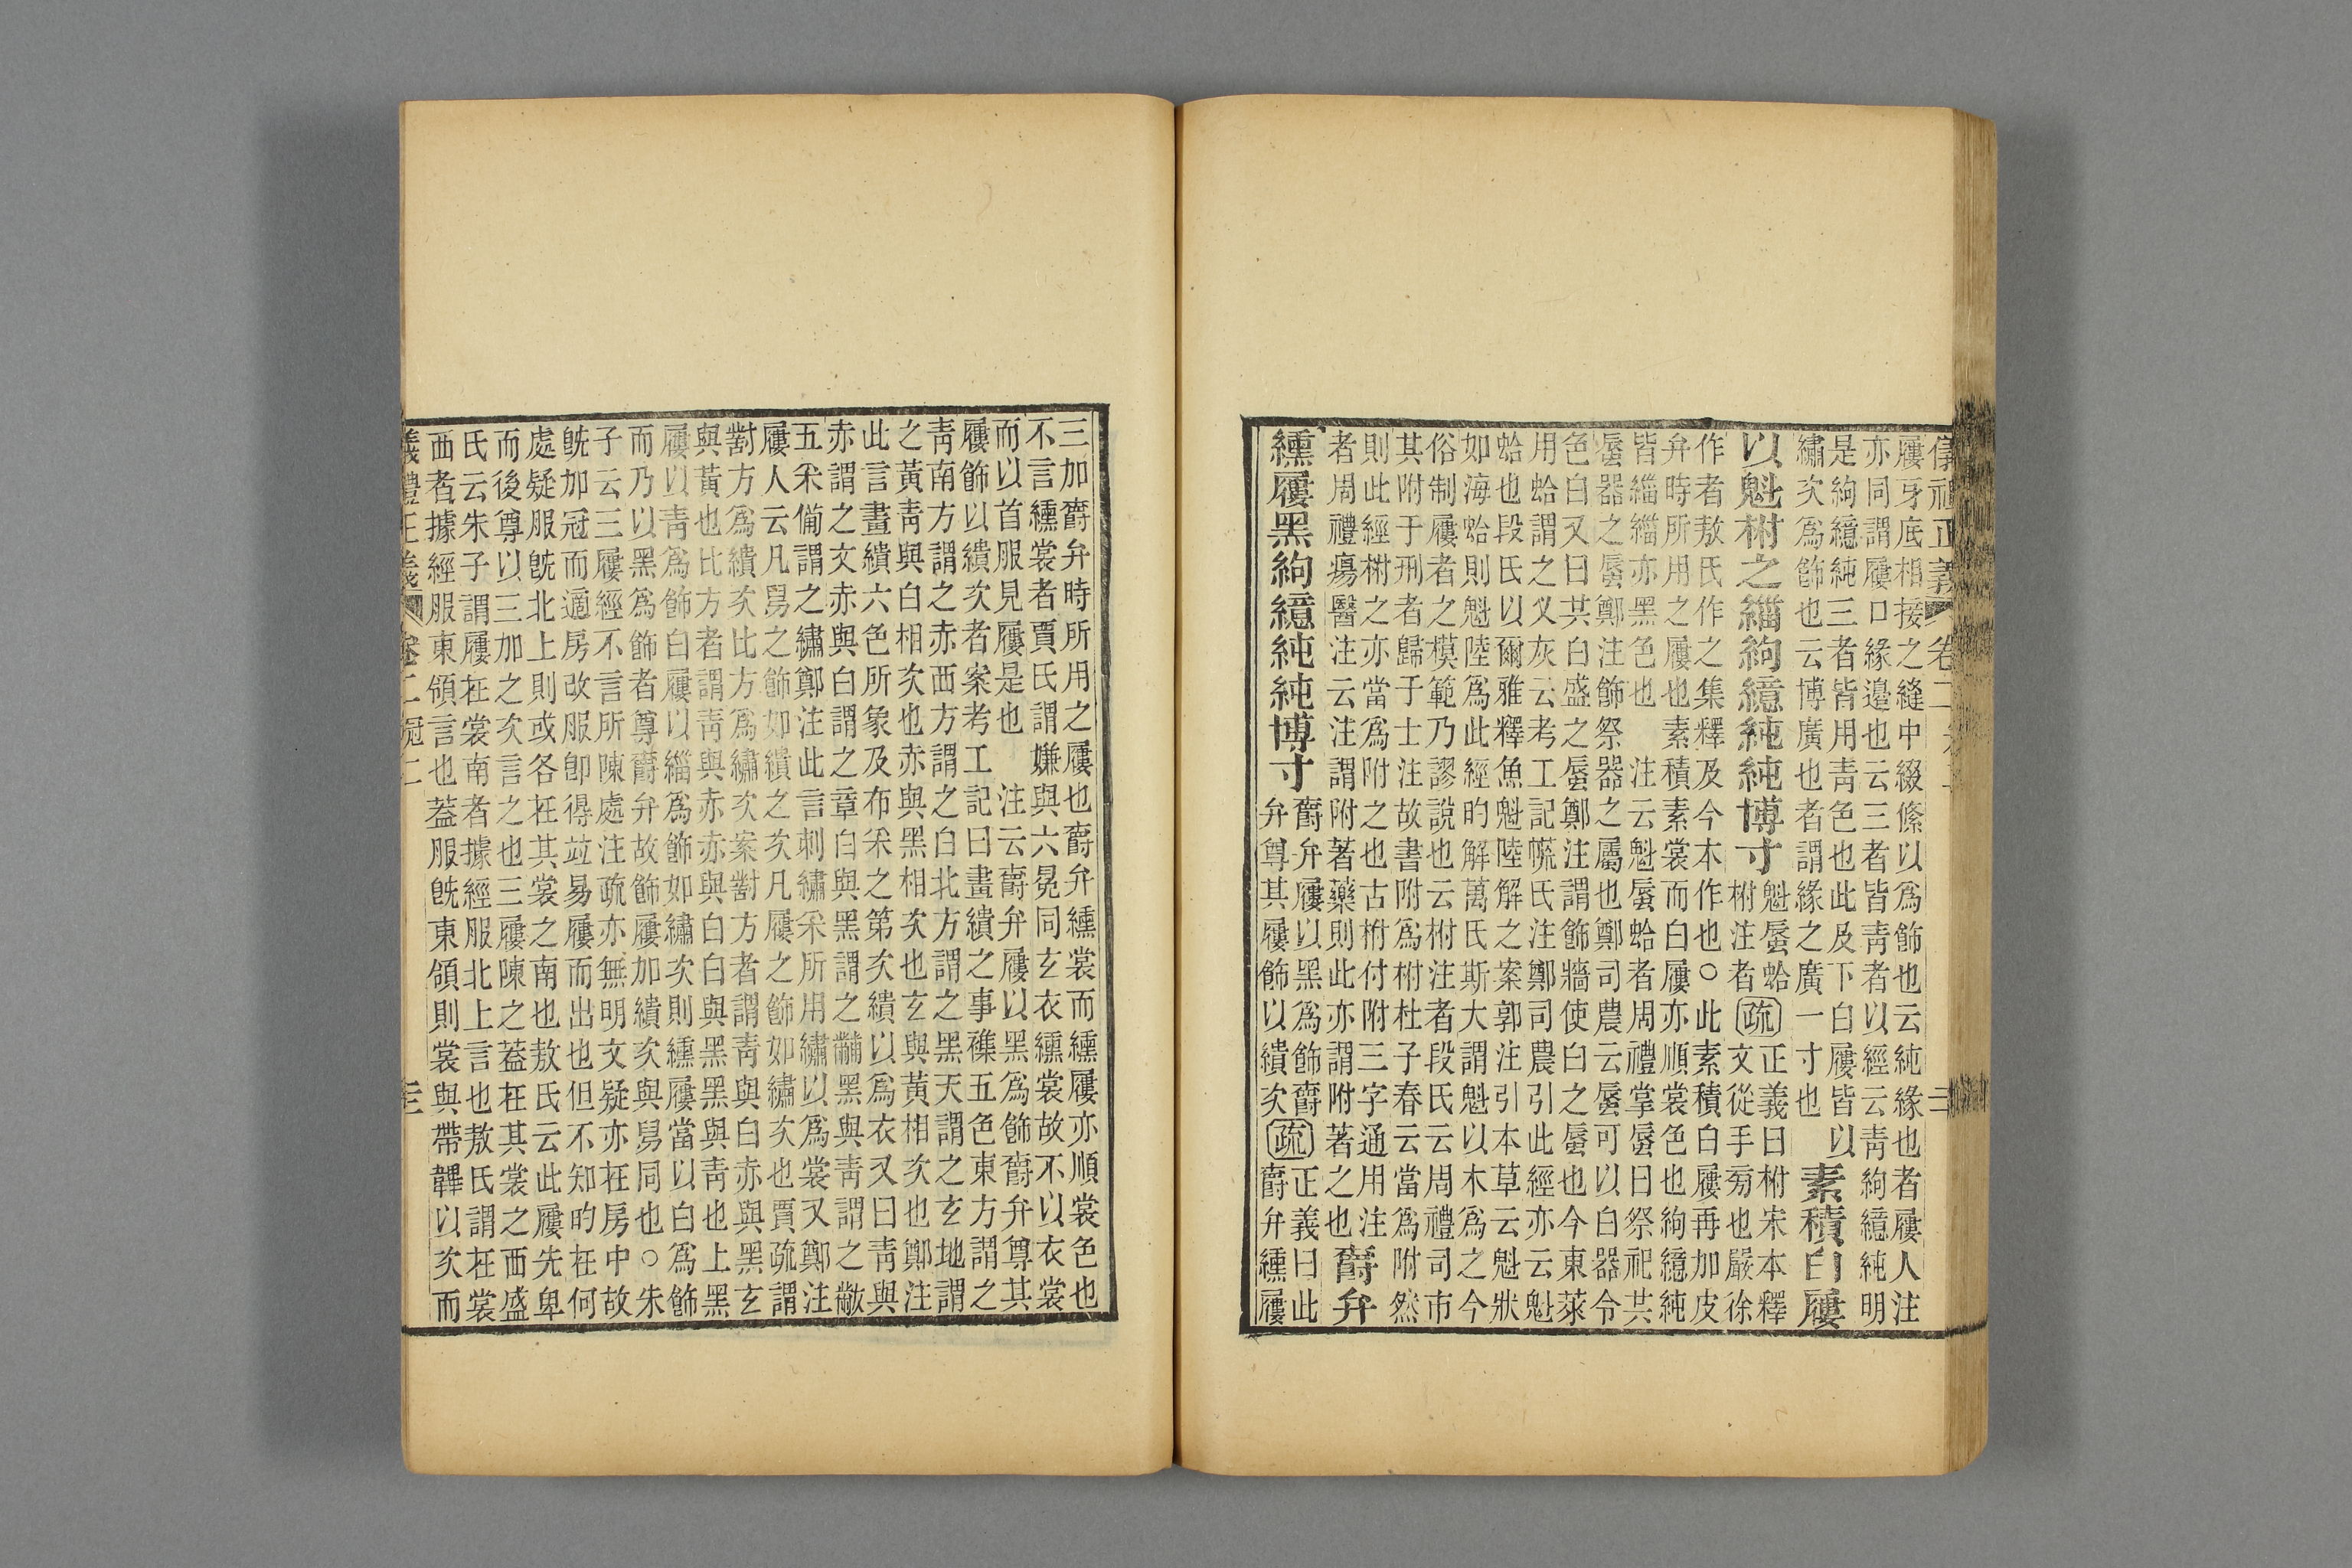 屨牙底相接之縫中綴絛以爲飾也云純緣也者屨人注
亦同謂屨口緣邉也云三者皆靑者以經云靑絇繶純明
是絇繶純三者皆用靑色也此及下白屨皆以
繡次爲飾也云博廣也者謂緣之廣一寸也
素積白屨
以魁柎之緇絇繶純純博寸
魁蜃蛤
柎注者
疏
正義曰柎宋本釋
文從手㫄也嚴徐
作者敖氏作之集釋及今本作也○此素積白屨再加皮
弁時所用之屨也素積素裳而白屨亦順裳色也絇繶純
皆緇緇亦黑色也 注云魁蜃蛤者周禮掌蜃曰祭祀共
蜃器之蜃鄭注飾祭器之屬也鄭司農云蜃可以白器令
色白又曰共白盛之蜃鄭注謂飾牆使白之蜃也今東萊
用蛤謂之义灰云考工記㡛氏注鄭司農引此經亦云魁
蛤也段氏以爾雅釋魚魁陸解之案郭注引本草云魁狀
如海蛤則魁陸爲此經旳解萬氏斯大謂魁以木爲之今
俗制屨者之模範乃謬說也云柎注者段氏云周禮司市
其附于刑者歸于士注故書附爲柎杜子春云當爲附然
則此經柎之亦當爲附之也古柎付附三字通用注
者周禮瘍醫注云注謂附著藥則此亦謂附著之也
爵弁
纁屨黑絇繶純純博寸
爵弁屨以黑爲飾爵
弁尊其屨飾以繢次
疏
正義曰此
爵弁纁屨
三加爵弁時所用之屨也爵弁纁裳而纁屨亦順裳色也
不言纁裳者賈氏謂嫌與六冕同玄衣纁裳故不以衣裳
而以首服見屨是也 注云爵弁屨以黑爲飾爵弁尊其
屨飾以繢次者案考工記曰畫繢之事襍五色東方謂之
靑南方謂之赤西方謂之白北方謂之黑天謂之玄地謂
之黃靑與白相次也赤與黑相次也玄與黃相次也鄭注
此言畫繢六色所象及布采之第次繢以爲衣又曰靑與
赤謂之文赤與白謂之章白與黑謂之黼黑與靑謂之黻
五采備謂之繡鄭注此言刺繡采所用繡以爲裳又鄭注
屨人云凡舄之飾如繢之次凡屨之飾如繡次也賈疏謂
對方爲繢次比方爲繡次案對方者謂靑與白赤與黑玄
與黃也比方者謂靑與赤赤與白白與黑黑與靑也上黑
屨以靑爲飾白屨以緇爲飾如繡次則纁屨當以白爲飾
而乃以黑爲飾者尊爵弁故飾屨加繢次與舄同也○朱
子云三屨經不言所陳處注疏亦無明文疑亦在房中故
旣加冠而適房改服卽得竝易屨而出也但不知旳在何
處疑服旣北上則或各在其裳之南也敖氏云此屨先卑
而後尊以三加之次言之也三屨陳之葢在其裳之西盛
氏云朱子謂屨在裳南者據經服北上言也敖氏謂在裳
西者據經服東領言也葢服旣東領則裳與帶韠以次而